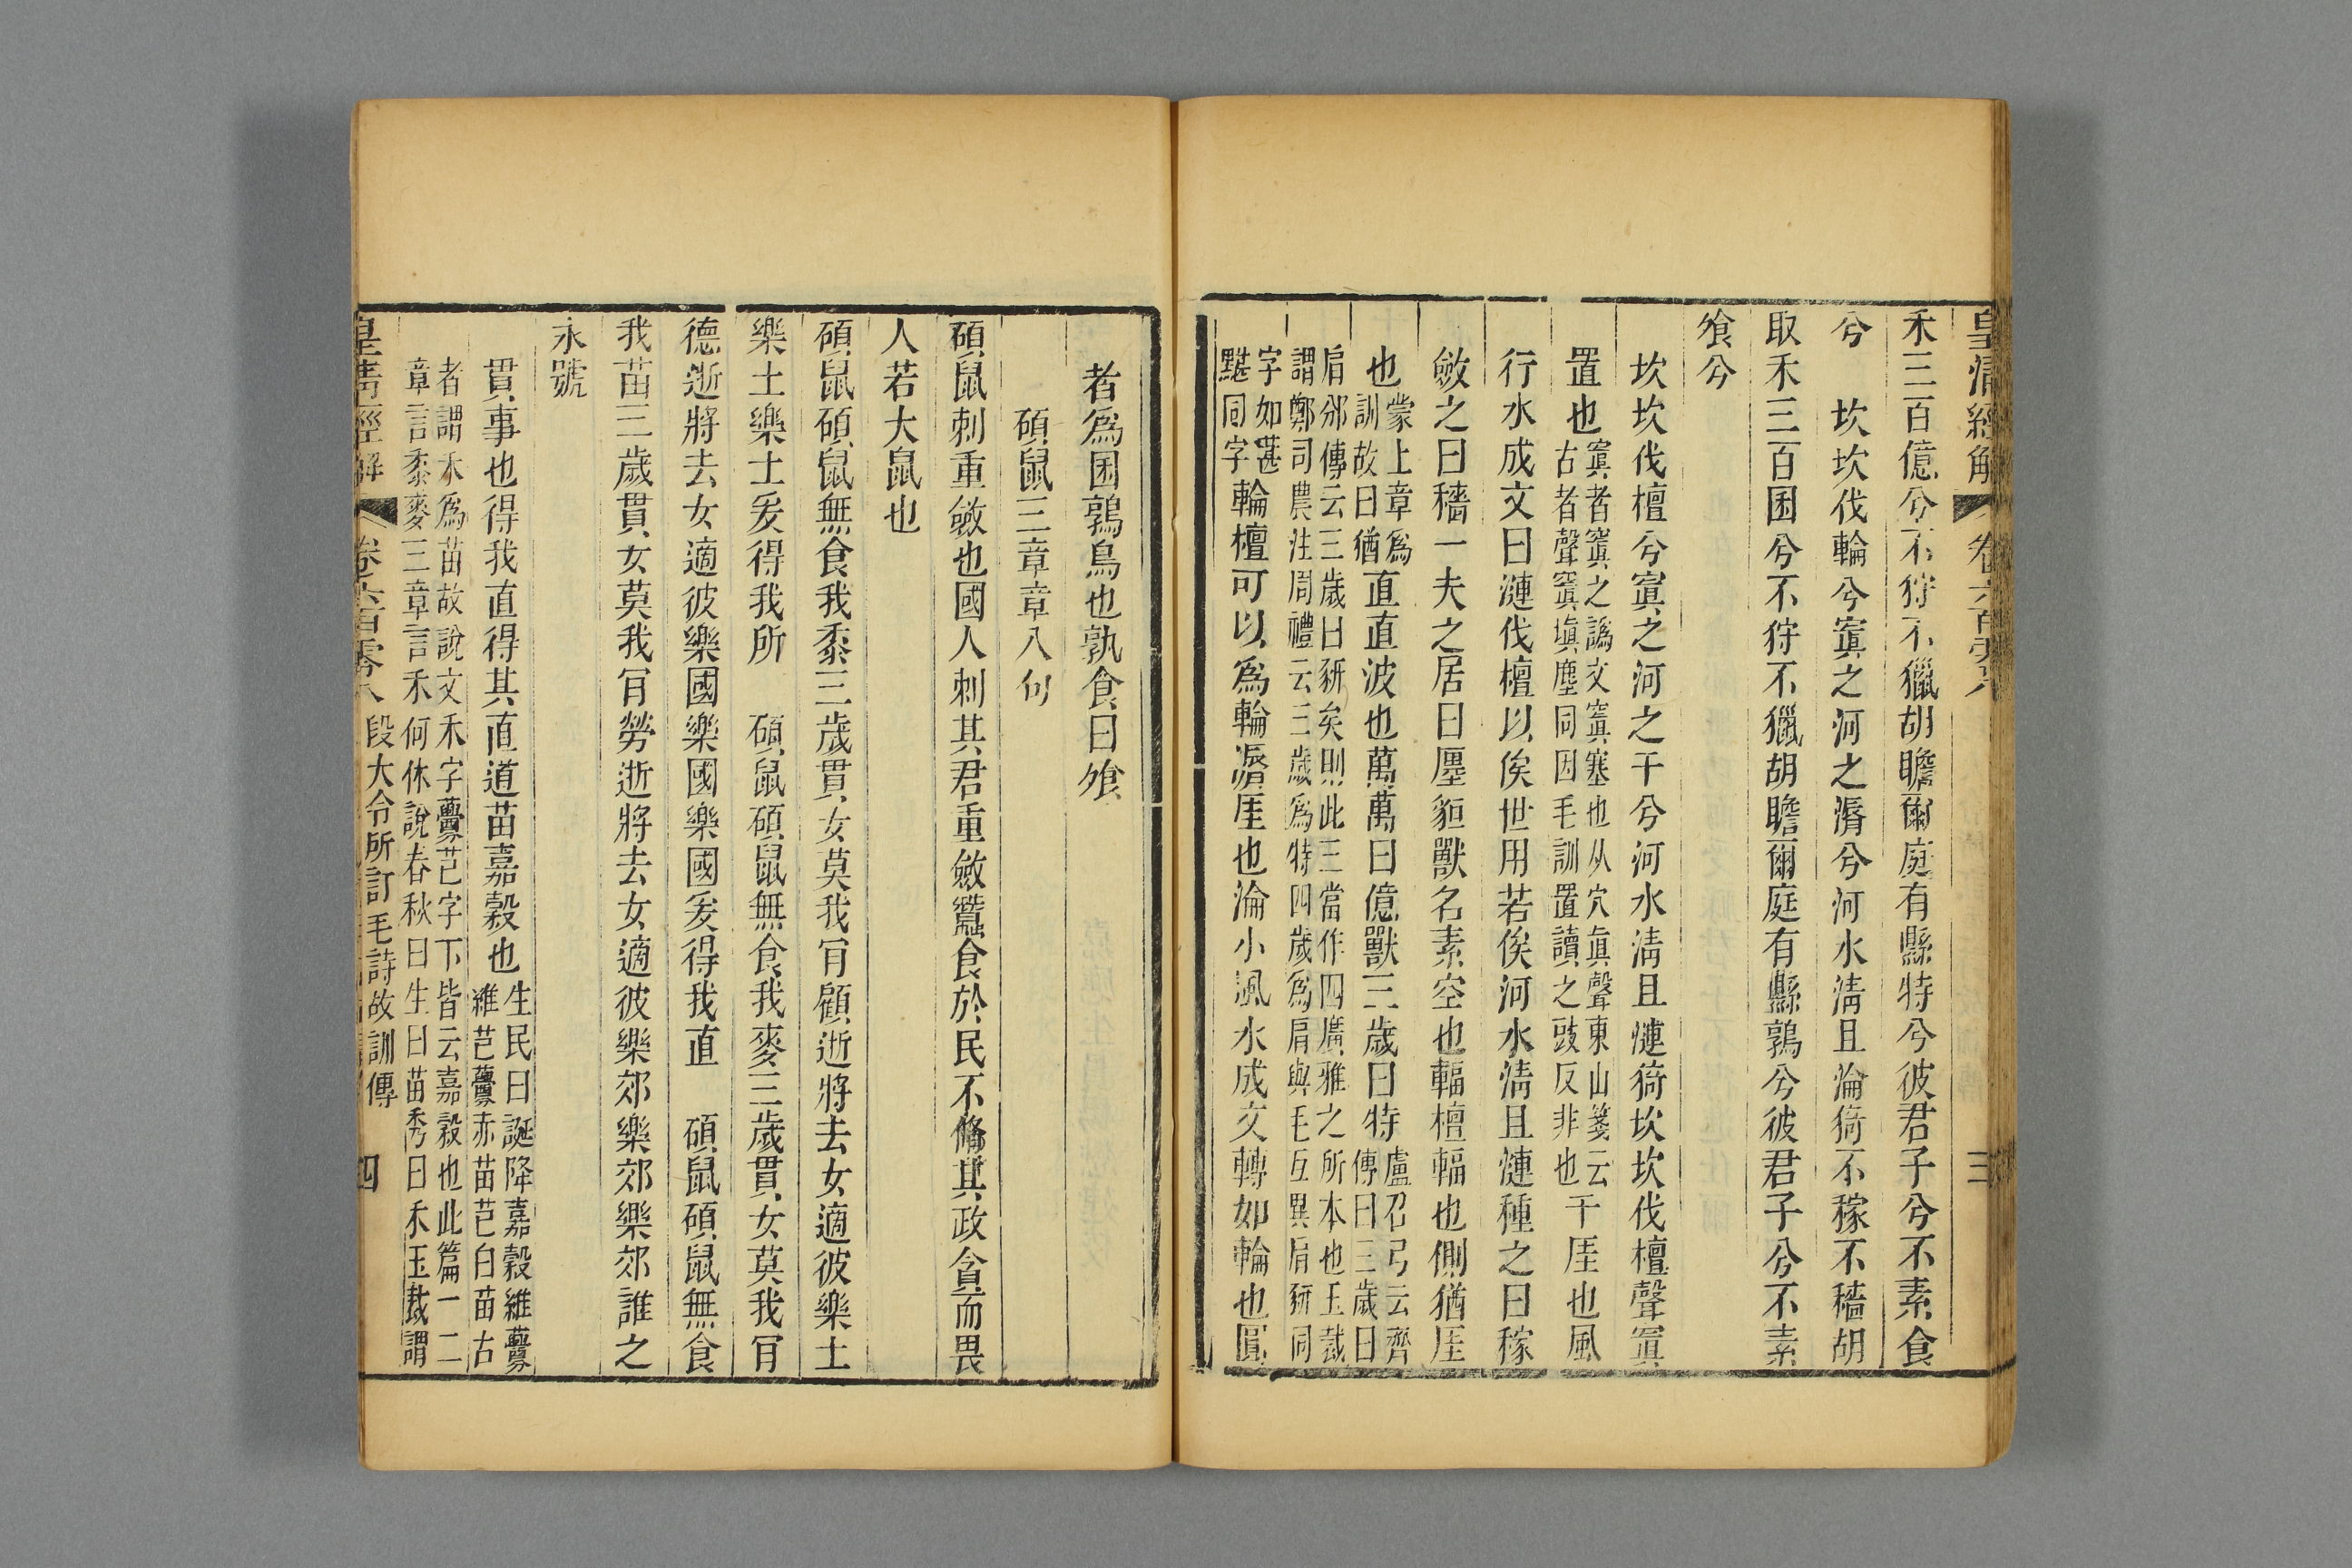 皇清經解 卷六百零八 三
禾三百億兮不狩不獵胡瞻爾庭有縣特兮彼君子兮不素食
兮　坎坎伐輪兮寘之河之漘兮河水清且淪猗不稼不穡胡
取禾三百囷兮不狩不獵胡瞻爾庭有縣鶉兮彼君子兮不素
飧兮
坎坎伐檀兮寘之河之干兮河水清且漣猗坎坎伐檀聲寘
置也寘者窴之譌文窴塞也从穴眞聲東山箋云古者聲窴塡塵同因毛訓置讀之豉反非也干厓也風
行水成文曰漣伐檀以俟世用若俟河水清且漣種之曰稼
斂之曰穡一夫之居曰廛貆獸名素空也輻檀輻也側猶厓
也蒙上章爲訓故曰猶直直波也萬萬曰億獸三歲曰特盧召弓云齊傳曰三歲曰
肩邠傳云三歲曰豜矣則此三當作四廣雅之所本也玉裁謂鄭司農注周禮云三歲爲特四歲爲肩與毛互異肩豜同
字如葚黮同字輪檀可以爲輪漘厓也淪小風水成文轉如輪也圓
者爲囷鶉鳥也孰食曰飧
碩鼠三章章八句
碩鼠刺重斂也國人刺其君重斂蠶食於民不脩其政貪而畏
人若大鼠也
碩鼠碩鼠無食我黍三歲貫女莫我肯顧逝將去女適彼樂土
樂土樂土爰得我所　碩鼠碩鼠無食我麥三歲貫女莫我肯
德逝將去女適彼樂國樂國樂國爰得我直　碩鼠碩鼠無食
我苗三歲貫女莫我肯勞逝將去女適彼樂郊樂郊樂郊誰之
永號
貫事也得我直得其直道苗嘉穀也生民曰誕降嘉穀維虋維芑虋赤苗芑白苗古
者謂禾爲苗故說文禾字虋芑字下皆云嘉穀也此篇一二章言黍麥三章言禾何休說春秋曰生曰苗秀曰禾玉裁謂
皇清經解 卷六百零八 段大令所訂毛詩故訓傳 四